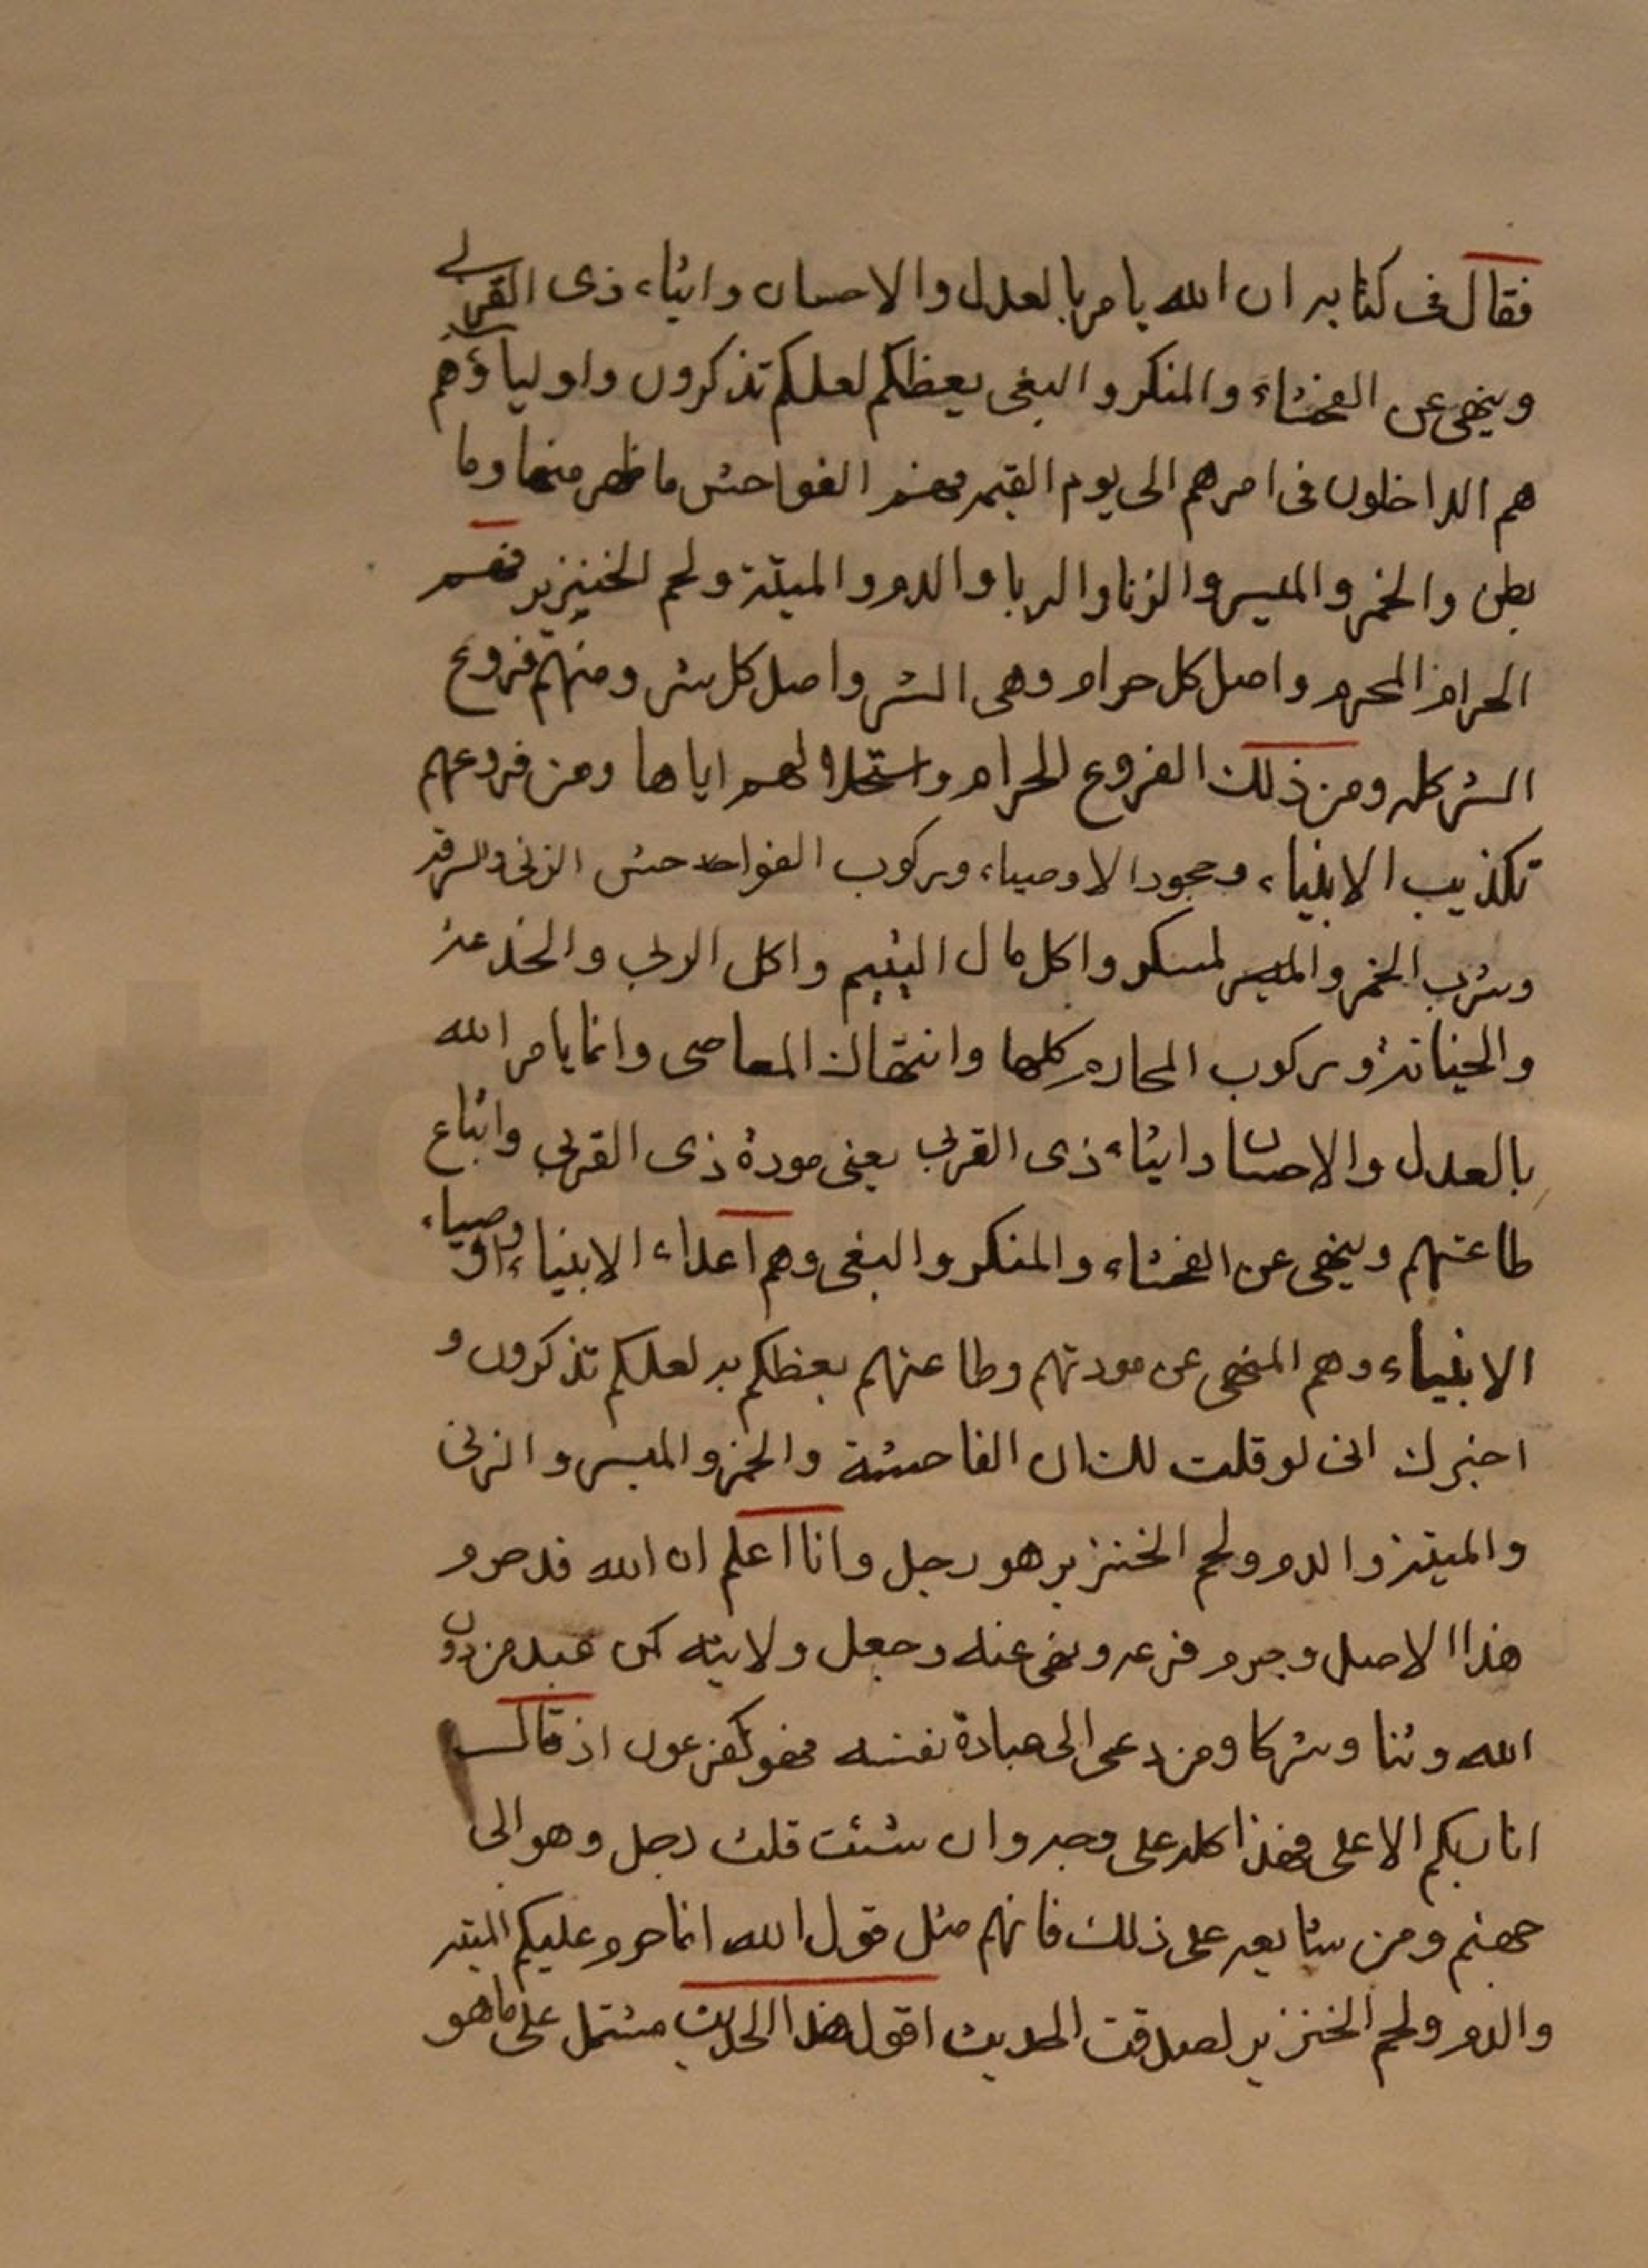 فقال فى كتابه ان الله يامر بالعدل والاحسان وايتاء ذى القربى
وينهى عن الفحشاء والمنكر والبغى يعظكم لعلكم تذكرون واولياؤهم
هم الداخلون فى امرهم الى يوم القيمه فهم الفواحش ما ظهر منها وما
بطن والخمر والميسر والزنا والربا والدم والميتة ولحم الخنزير فهم
الحرام المحرم واصل كل حرام وهى الشر واصل كل شر ومنهم فروع
الشر كله ومن ذلك الفروع الحرام واستحلالهم اياها ومن فروعهم
تكذيب الانبياء وجحود الاوصياء وركوب الفواحش الزنى والسرقه
وشرب الخمر والميسر لمسكر واكل مال اليتيم واكل الربى والخدعة
والخيانة وركوب المحارم كلها وانتهاك المعاصى وانما يامر الله
بالعدل والاحسان وايتاء ذى القربى يعنى مودة ذى القربى واتباع
طاعتهم وينهى عن الفحشاء والمنكر والبغى وهم اعداء الانبياء واوصياء
الانبياء وهم المنهى عن مودتهم وطاعتهم يعظكم به لعلكم تذكرون و
اخبرك انى لو قلت لك ان الفاحشة والخمر والميسر والزنى
والميتة والدم ولحم الخنزير هو رجل وانا اعلم ان الله قد حرم
هذا الاصل وحرم فرعه ونهى عنه وجعل ولايته كمن عبد من دون
الله وثنا وشركا ومن دعى الى عبادة نفسه فهو كفرعون اذ قال
انا ربكم الاعلى فهذا كله على وجه وان شئت قلت رجل وهو الى
جهنم ومن شايعه على ذلك فانهم مثل قول الله انما حرم عليكم الميته
والدم ولحم الخنزير لصدقت الحديث اقول هذا الحديث مشتمل على ما هو